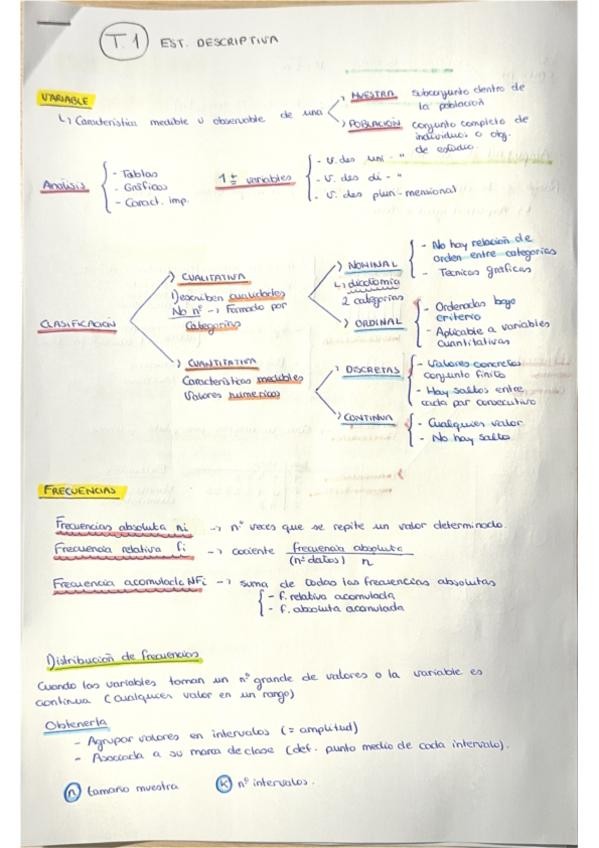 T.1 EST. DESCRIPTIVA
VARIABLE
↳ Característica medible u observable de una
→ MUESTRA subconjunto dentro de
la población
→ POBLACIÓN conjunto completo de
individuos o obj.
de estudio.
Análisis
- Tablas
- Gráficos
- Caract. imp.
variables
- v. des uni - "
- v. des di - "
- v. des pluri - mensional
CLASIFICACIÓN
→ CUALITATIVA
Describen cualidades
No nº → Formado por
Categorías
→ NOMINAL
↳ dicotomía
2 categorías
- No hay relación de
orden entre categorías
- Técnicas gráficas
→ ORDINAL
- Ordenadas bajo
criterio
- Aplicable a variables
cuantitativas
→ CUANTITATIVA
Características medibles
Valores numéricos
→ DISCRETAS
- Valores concretos
conjunto finito
- Hay saltos entre
cada par consecutivo
→ CONTINUA
- Cualquier valor
- No hay salto
FRECUENCIAS
Frecuencias absoluta ni → nº veces que se repite un valor determinado.
Frecuencia relativa fi → cociente frecuencia absoluta
(nº datos) n
Frecuencia acomulada NFi → suma de todas las frecuencias absolutas
- f. relativa acomulada
- f. absoluta acomulada
Distribución de frecuencias
Cuando las variables toman un nº grande de valores o la variable es
continua (cualquier valor en un rango)
Obtenerla
- Agrupar valores en intervalos (= amplitud)
- Asociada a su marca de clase (def. punto medio de cada intervalo).
n tamaño muestra
K nº intervalos.